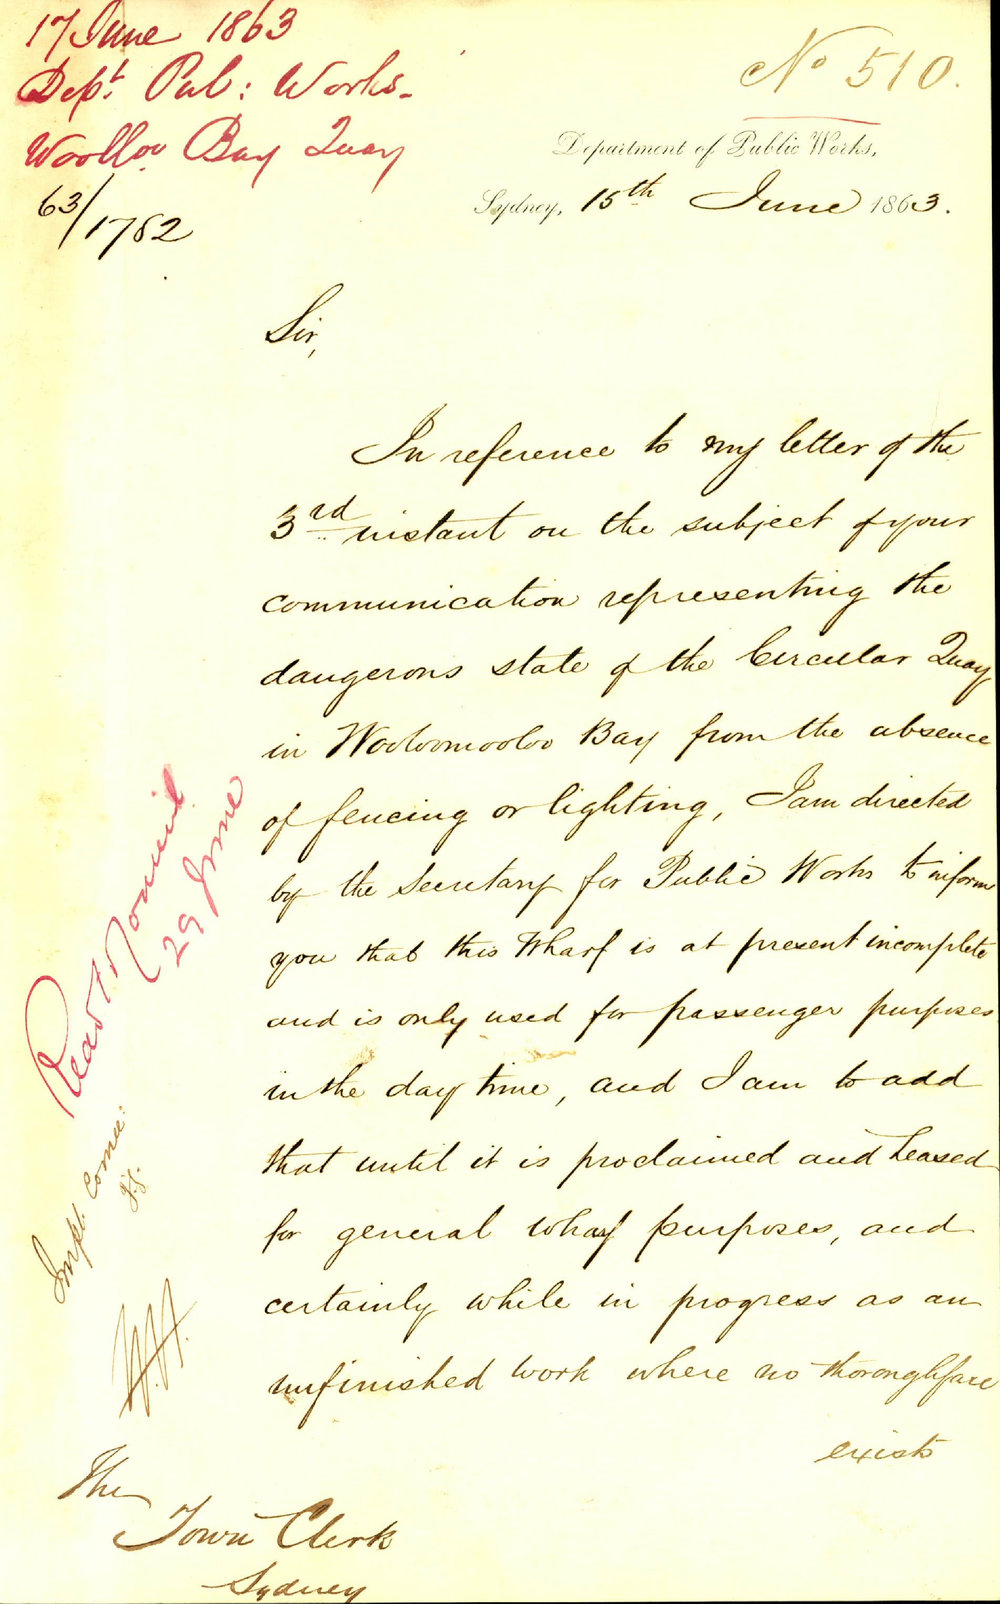 17 June 1863
Dept. Pub: Works.
Woolloo Bay Quay
63/1782
No 510.
Department of Public Works,
Sydney, 15th June 1863.
Sir,
In reference to my letter of the
3rd instant on the subject of your
communication representing the
dangerous state of the Circular Quay
in Wooloomooloo Bay from the absence
of fencing or lighting, I am directed
by the Secretary for Public Works to inform
you that this Wharf is at present incomplete
and is only used for passenger purposes
in the day time, and I am to add
that until it is proclaimed and Leased
for general wharf purposes, and
certainly while in progress as an
unfinished work where no thoroughfare
exists
The
Town Clerk
Sydney
29 June
Impt. Comee: